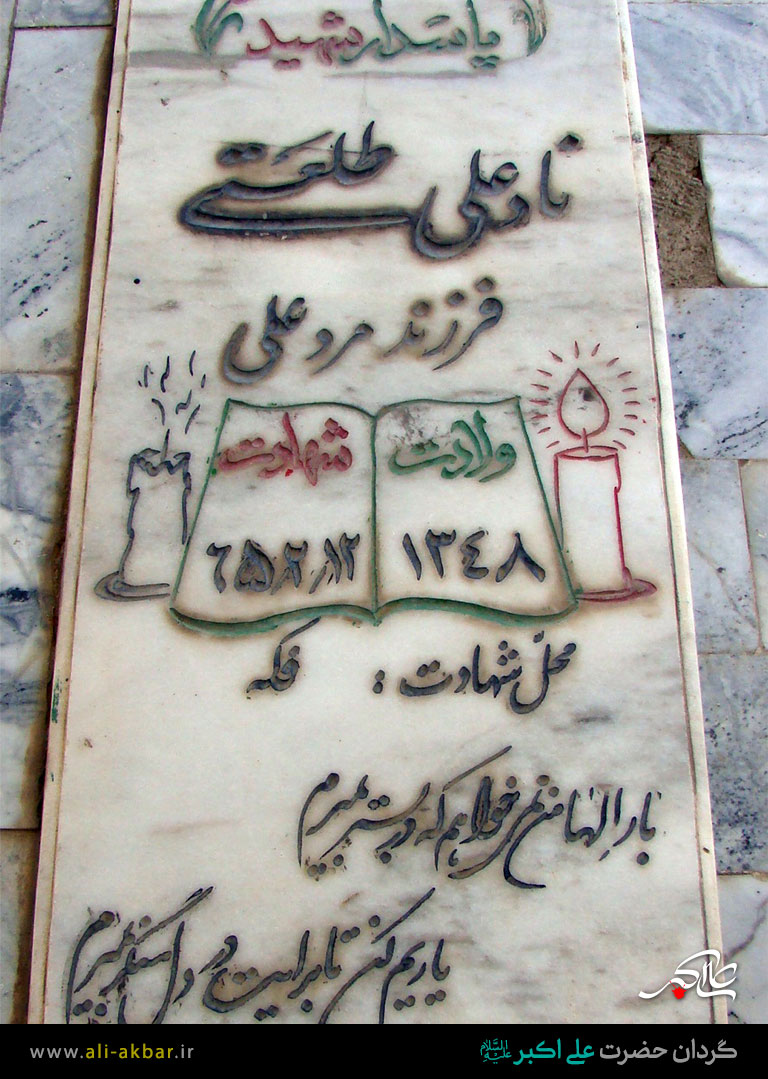 پاسدار شهید
نادعلی طلعتی
فرزند مردعلی
ولادت شهادت
۱۳۴۸ ۶۵٫۲٫۱۲
محلّ شهادت : فکه
بارالها من نمی‌خواهم که در بستر بمیرم
یاریم کن تا برایت در دل سنگر بمیرم
علی اکبر
گردان حضرت علی اکبر علیه السلام
www.ali-akbar.ir